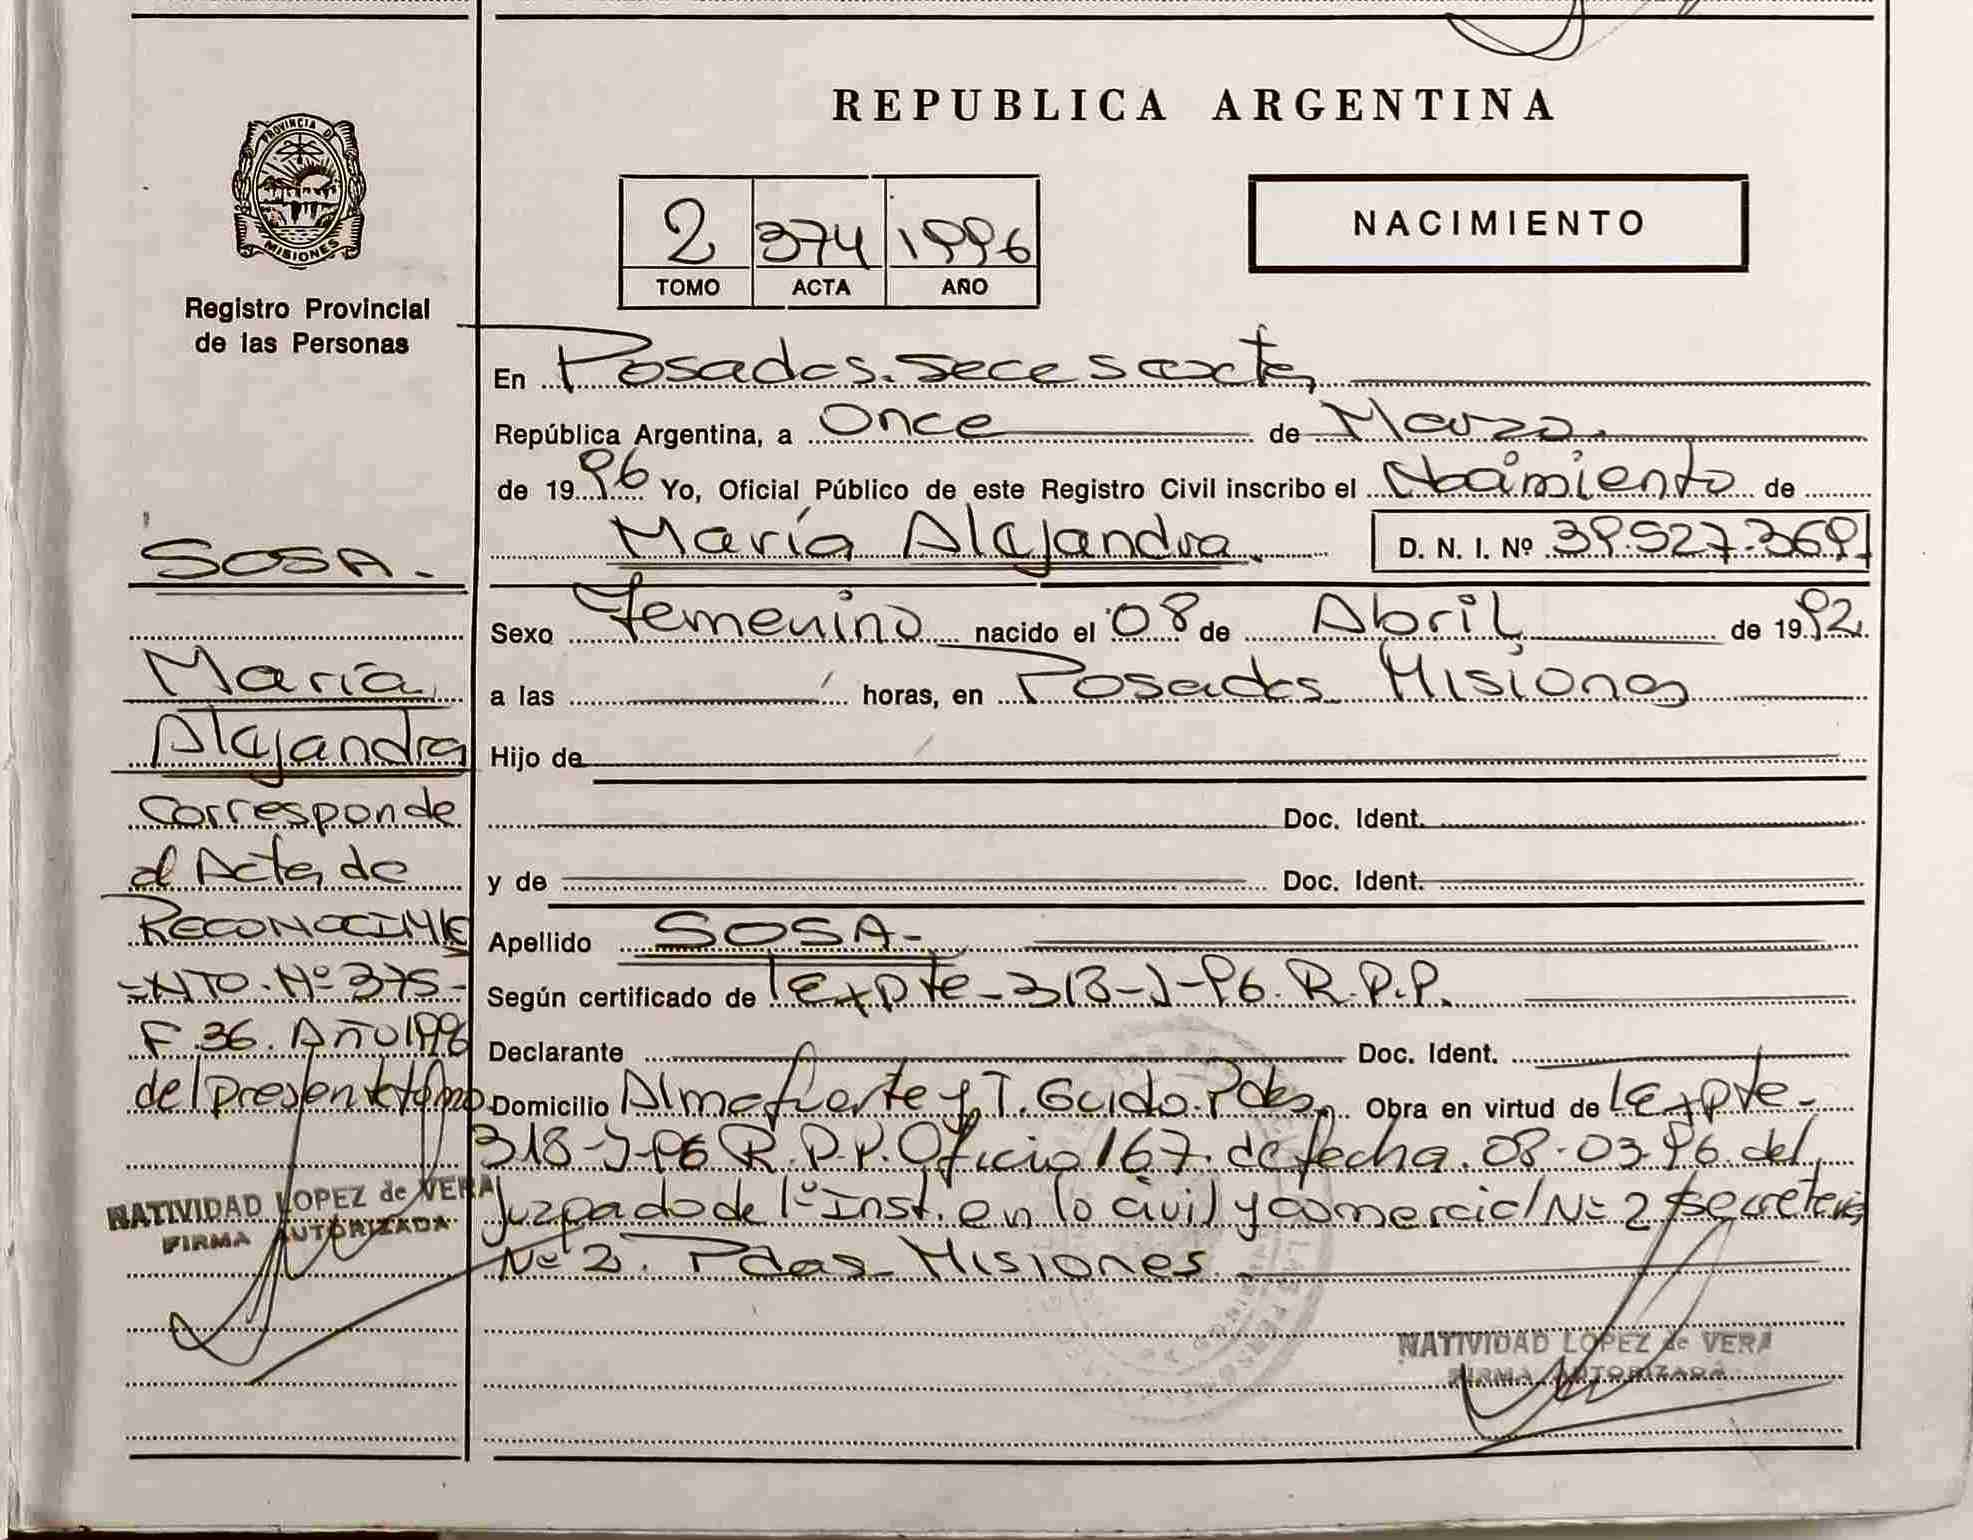 REPUBLICA ARGENTINA
PROVINCIA D
MISIONES
Registro Provincial
de las Personas
2 374 1996
TOMO ACTA AÑO
NACIMIENTO
En Posadas. Secc sexta,
República Argentina, a Once de Marzo.
de 1996 Yo, Oficial Público de este Registro Civil inscribo el Nacimiento de
María Alejandra. D. N. I. Nº 39.527.369
Sexo Femenino nacido el 08 de Abril de 1992.
a las horas, en Posadas Misiones
Hijo de
Doc. Ident.
y de Doc. Ident.
Apellido SOSA-
Según certificado de Expte-318-J-96. R.P.P.
Declarante Doc. Ident.
Domicilio Almafuerte y T. Guido. Pdas. Obra en virtud de Expte-
318-J-96 R.P.P. Oficio 167. de fecha. 08-03-96. del
Juzgado de 1º Inst. en lo civil y comercial Nº 2 secretaria
Nº 2. Pdas Misiones
NATIVIDAD LOPEZ de VERA
FIRMA AUTORIZADA
SOSA-
María
Alejandra
Corresponde
al Acta de
RECONOCIMIE
-NTO. Nº 375-
F. 36. Año 1996
del presente tomo
NATIVIDAD LOPEZ de VERA
FIRMA AUTORIZADA